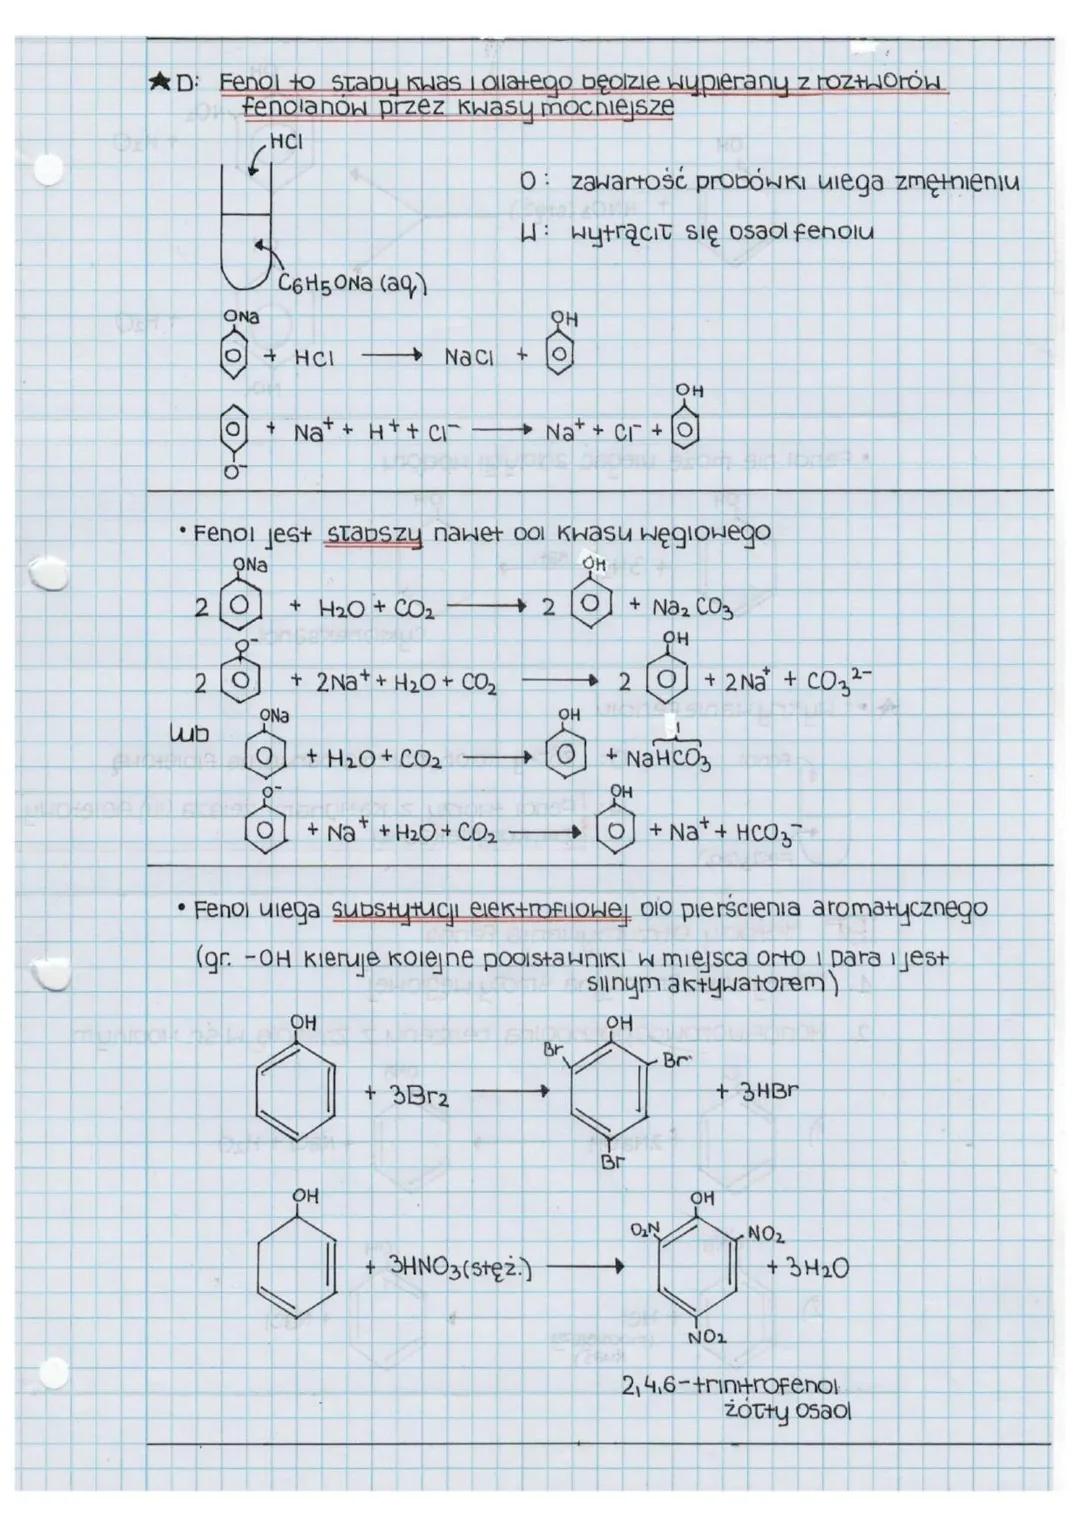 ★ D: Fenol to słaby kwas i dlatego będzie wypierany z roztworów
fenolanów przez kwasy mocniejsze
HCl
O: zawartość probówki ulega zmętnieniu
W: wytrącił się osad fenolu
C6H5ONa (aq)
ONa OH
+ HCl → NaCl +
OH
+ Na⁺ + H⁺ + Cl⁻ → Na⁺ + Cl⁻ +
O⁻
• Fenol jest słabszy nawet od kwasu węglowego
ONa OH
2 + H₂O + CO₂ → 2 + Na₂CO₃
O⁻ OH
2 + 2Na⁺ + H₂O + CO₂ → 2 + 2Na⁺ + CO₃²⁻
lub ONa OH
+ H₂O + CO₂ → + NaHCO₃
O⁻ OH
+ Na⁺ + H₂O + CO₂ → + Na⁺ + HCO₃⁻
• Fenol ulega substytucji elektrofilowej do pierścienia aromatycznego
(gr. -OH kieruje kolejne podstawniki w miejsca orto i para i jest
silnym aktywatorem)
OH OH
Br Br
+ 3Br₂ → + 3HBr
Br
OH OH
O₂N NO₂
+ 3HNO₃(stęż.) → + 3H₂O
NO₂
2,4,6-trinitrofenol
żółty osad